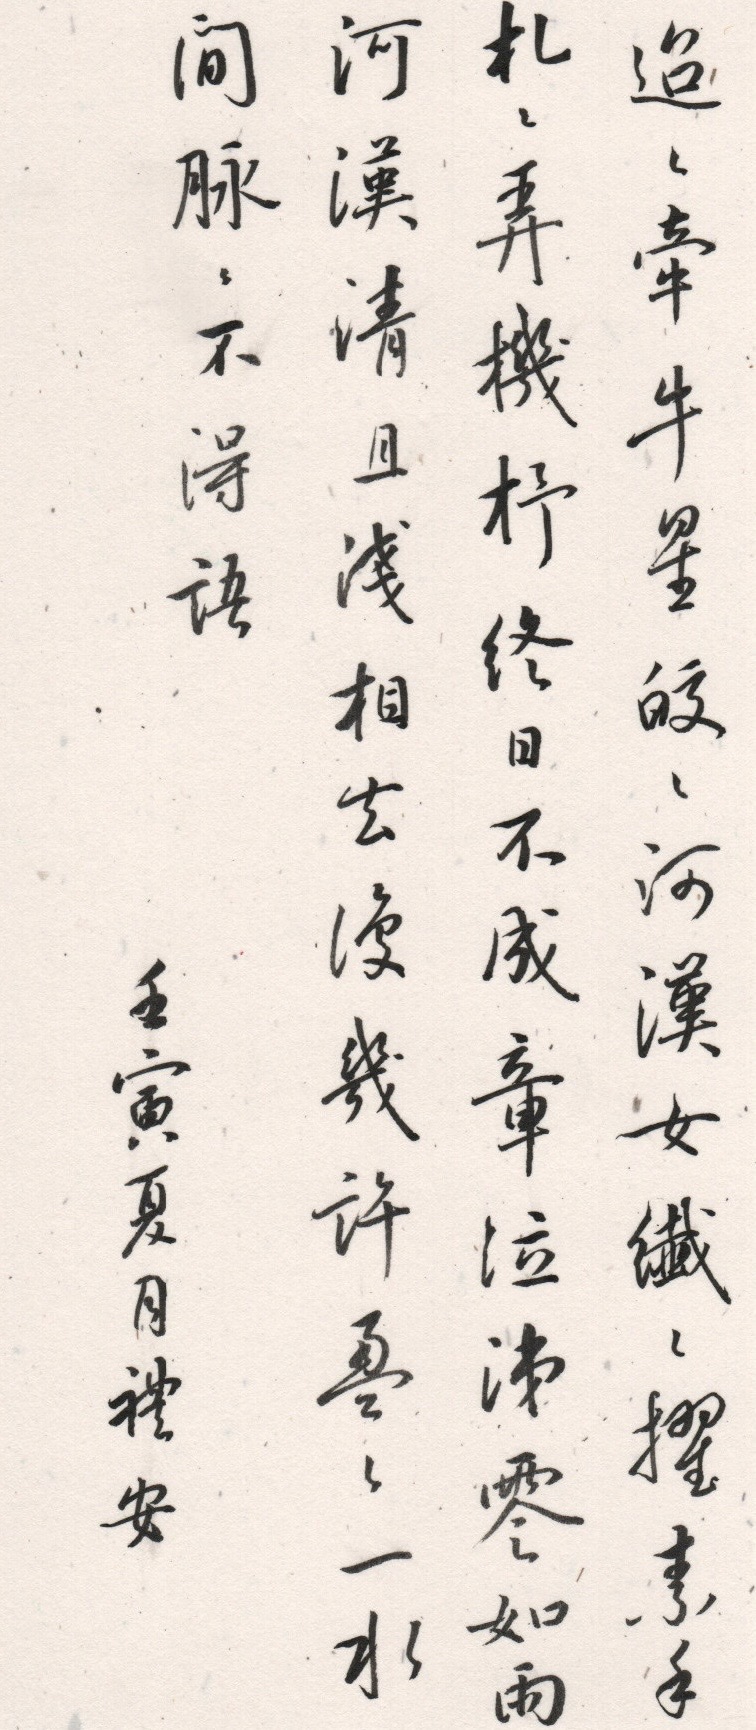 迢々牽牛星皎々河漢女纖々擢素手
札々弄機杼終日不成章泣涕零如雨
河漢清且淺相去復幾許盈々一水
間脉々不得語
壬寅夏月禮安